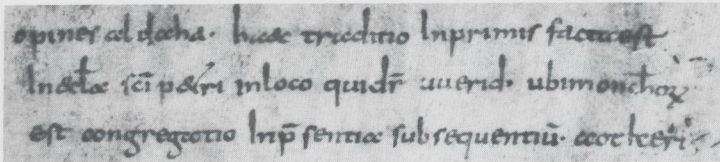 ad docha· haec traditio Inprimis facta est
In aecl̄a sc̄i petri inloco quidr̄ uuerid· ubimonc̄hoꝝ
est congregatio Inp̄sentia subsequentiū·